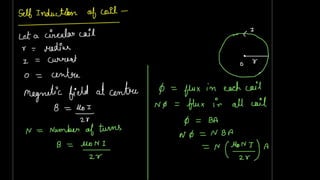 Self Induction of coil -
Let a circular coil
r = radius
I = current
O = centre
Magnetic field at centre
B = μ₀I / 2r
N = Number of turns
B = μ₀NI / 2r
I
O
r
ϕ = flux in each coil
Nϕ = flux in all coil
ϕ = BA
Nϕ = NBA
= N (μ₀NI / 2r) A